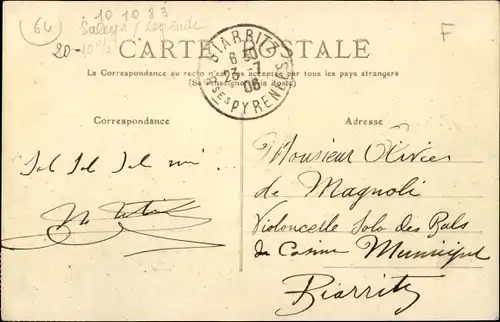 64
10 10 83
Saleya / Legende
20-
F
CARTE POSTALE
La Correspondance au recto n'est pas acceptée par tous les pays étrangers
(Se renseigner à la Poste)
BIARRITZ
6 30
23-7
06
Bses PYRENEES
Correspondance
Adresse
Sol Sol Sol mi.
Monsieur Olivier
de Magnoli
Violoncelle Solo des Bals
du Casino Municipal
Biarritz